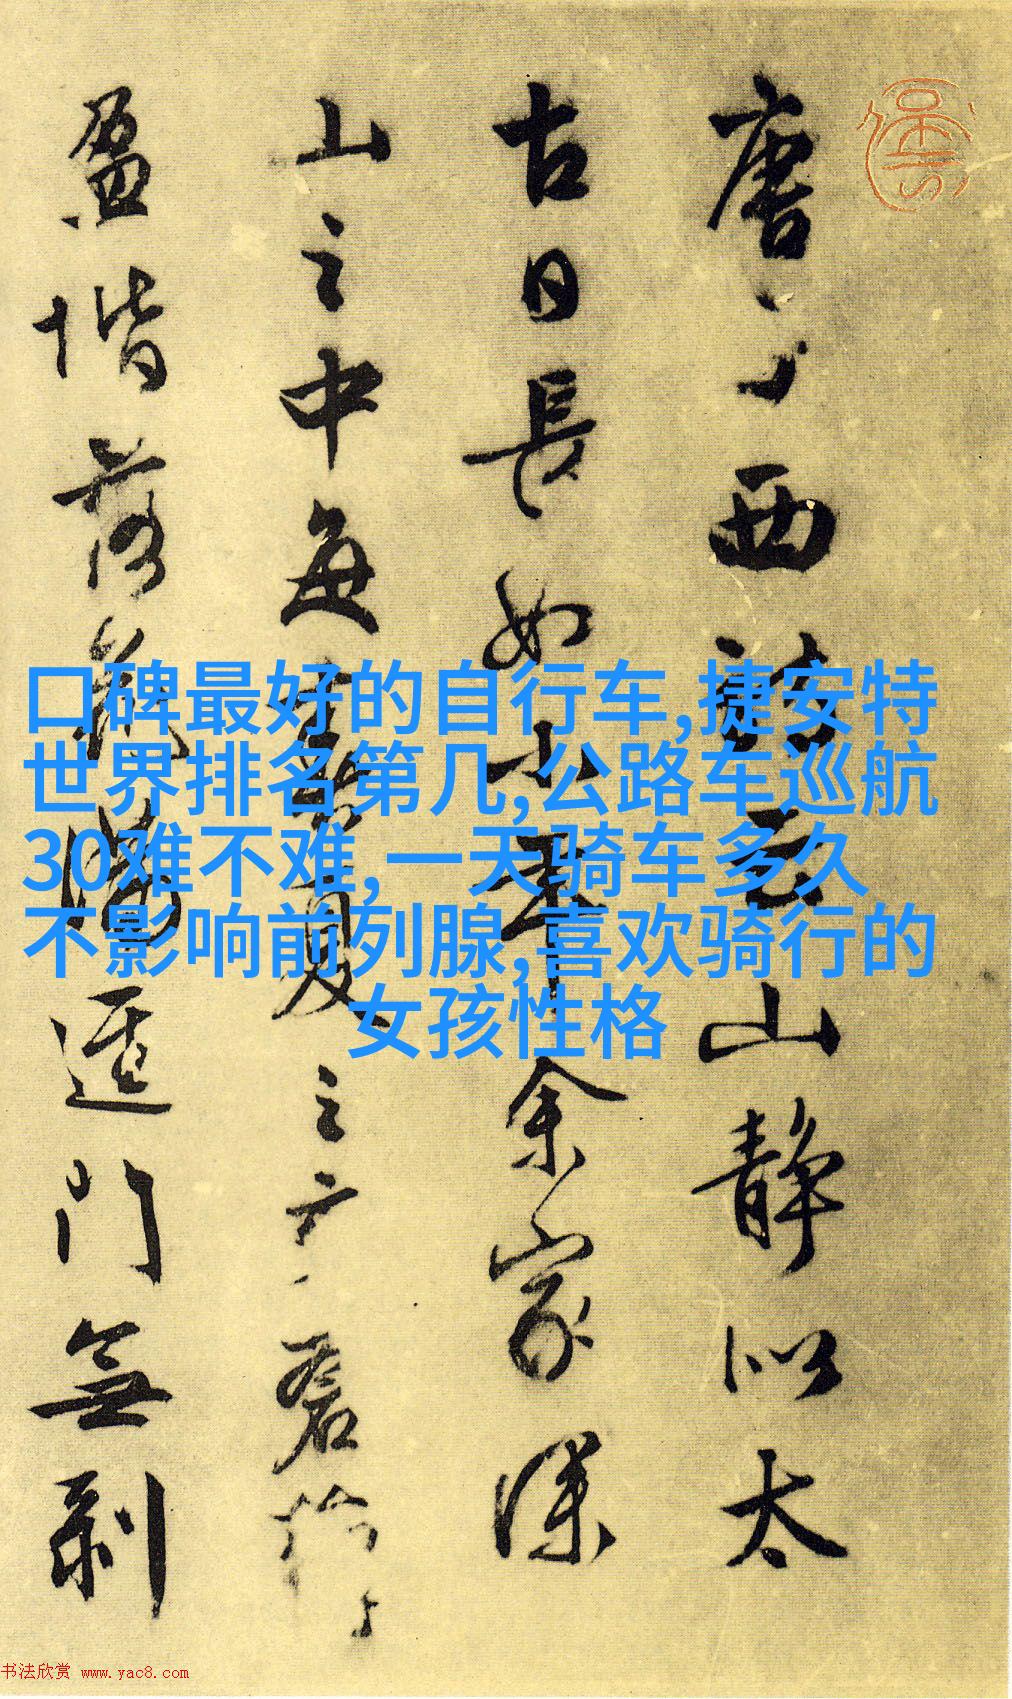 唐子西詩云山静似太
古日長如小年余家深
山之中每春夏之交蒼蘚
盈堦落花滿逕門無剥
口碑最好的自行车,捷安特
世界排名第几,公路车巡航
30难不难,一天骑车多久
不影响前列腺,喜欢骑行的
女孩性格
书法欣赏 www.yac8.com